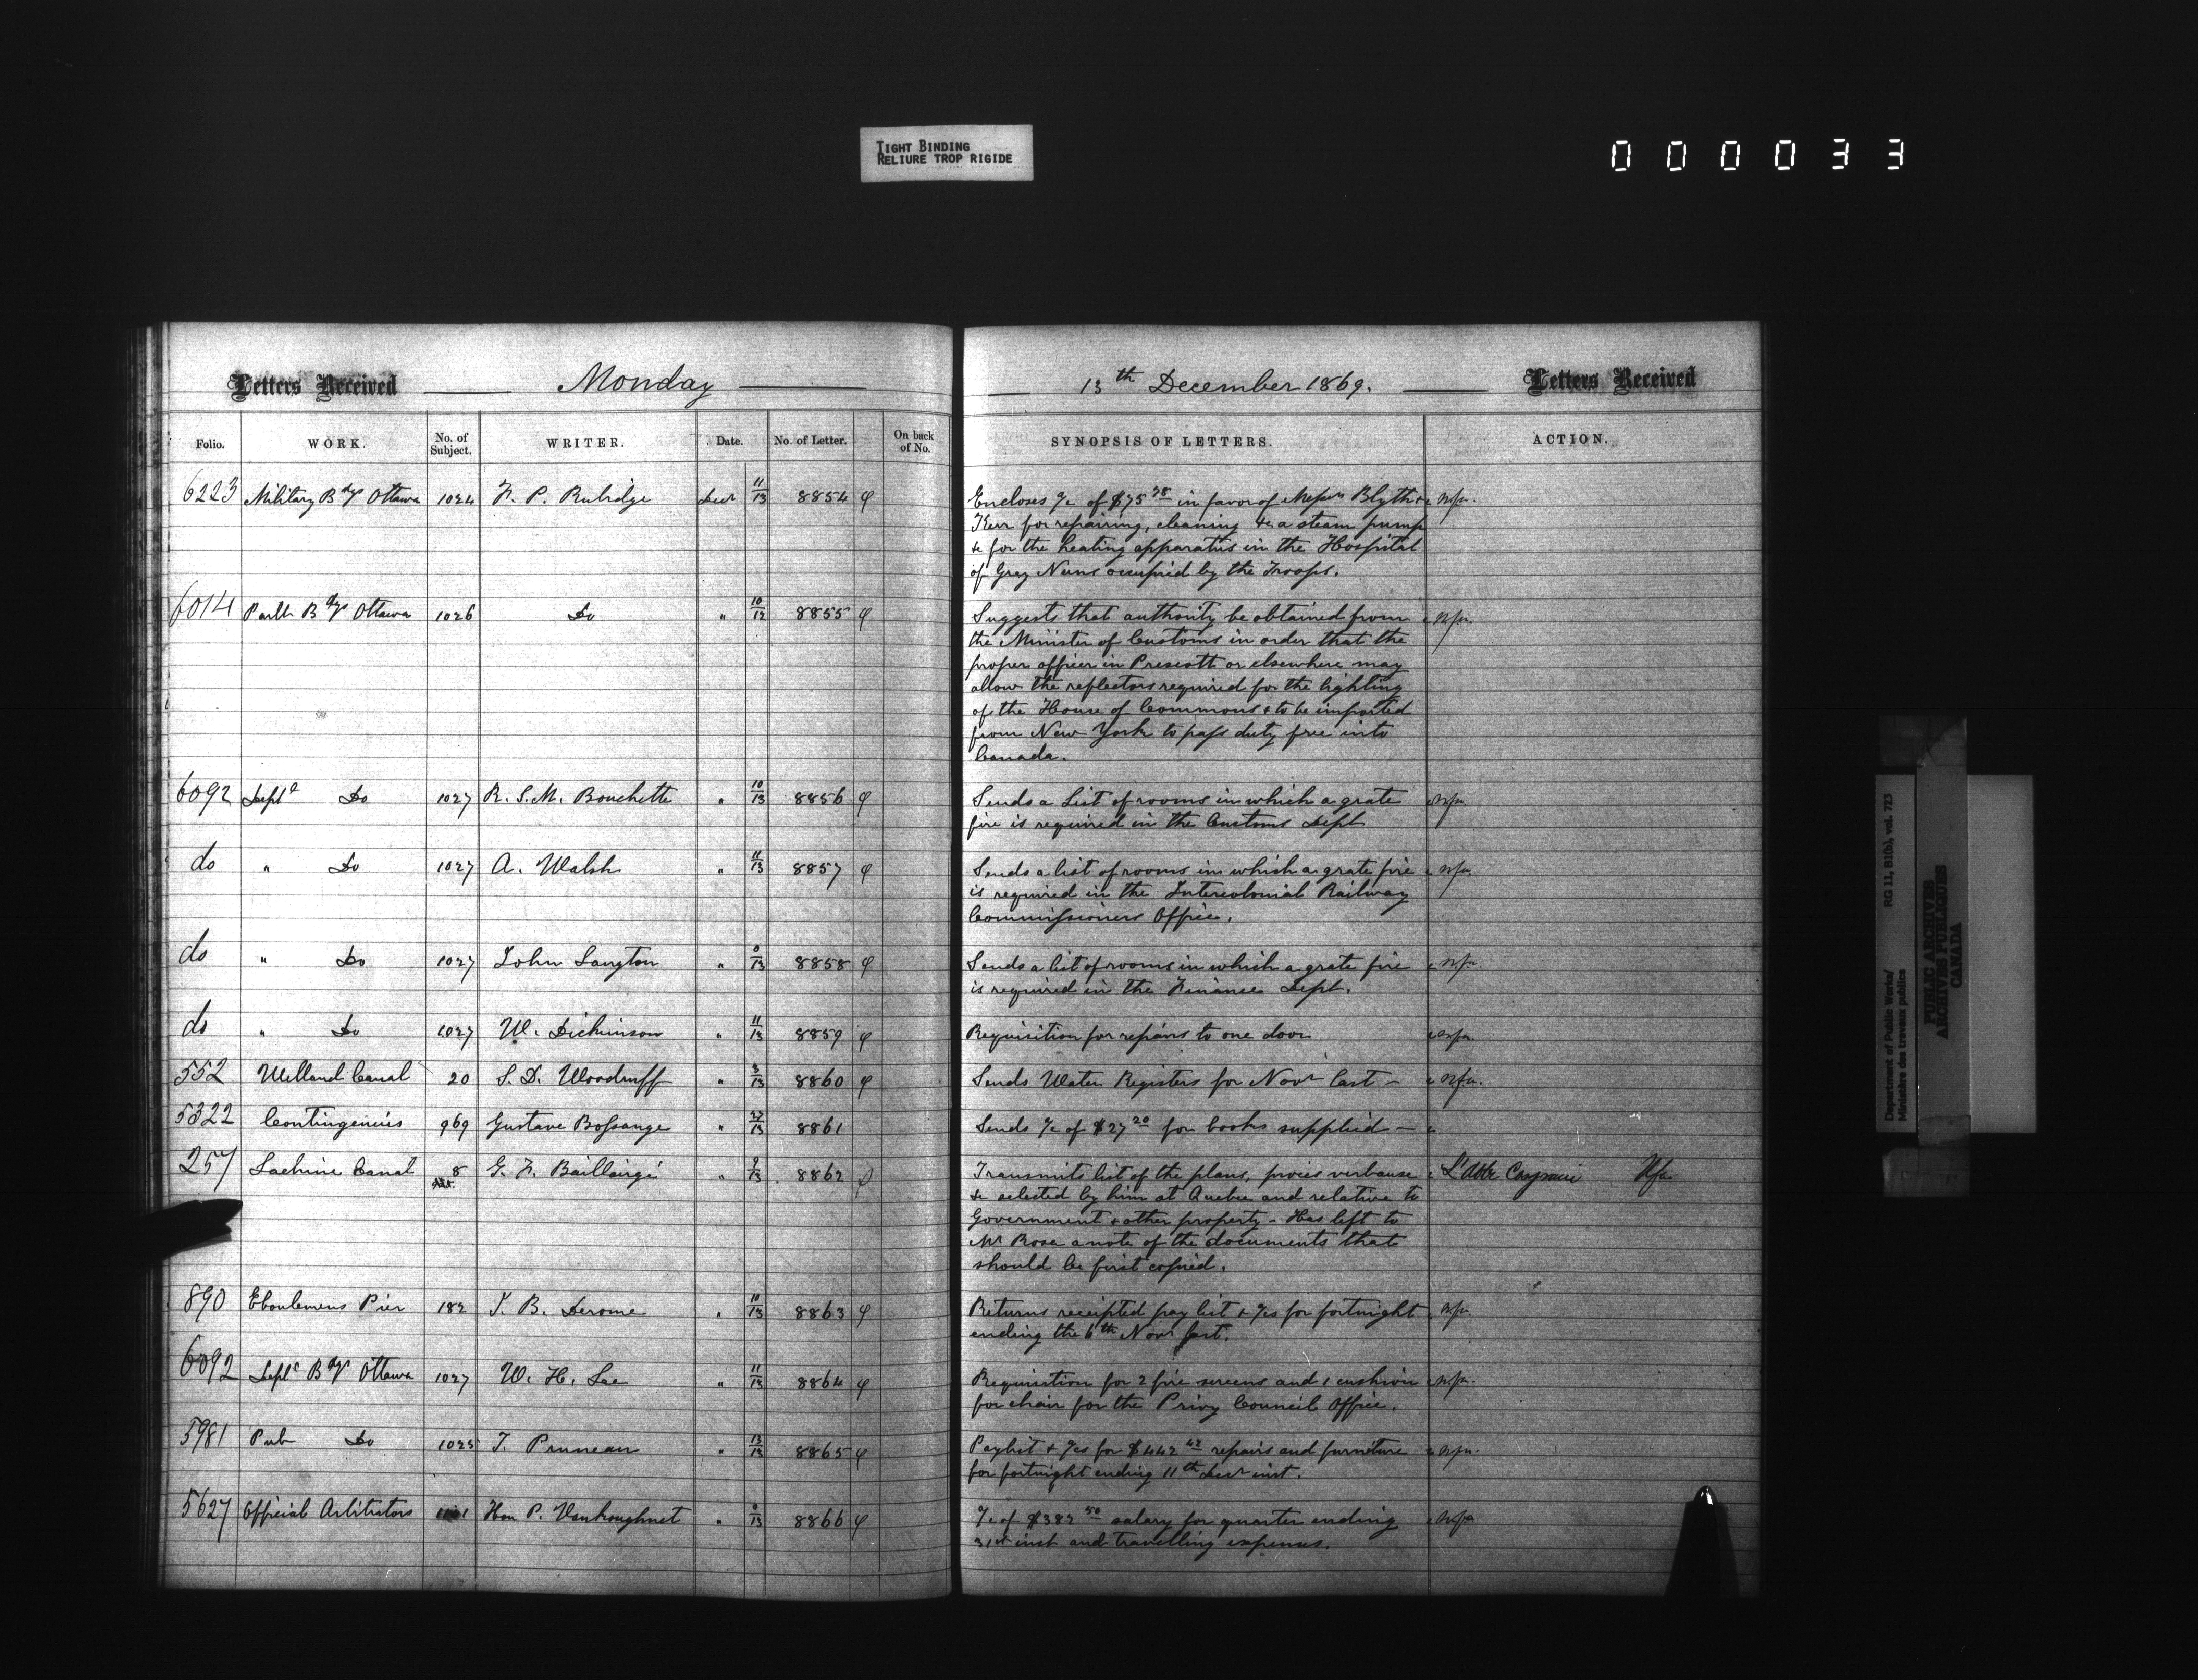 TIGHT BINDING
RELIURE TROP RIGIDE
000033
Letters Received Monday 13th December 1869. Letters Received
Folio. WORK. No. of Subject. WRITER. Date. No. of Letter. On back of No. SYNOPSIS OF LETTERS. ACTION.
6223 Military Bdgs Ottawa 1024 F. P. Rubidge Decr 11/13 8854 φ Encloses a/c of $75 38 in favor of Messrs Blyth & nfa.
Kerr for repairing, cleaning &c a steam pump
&c for the heating apparatus in the Hospital
of Gray Nuns occupied by the Troops.
6014 Parlt Bdgs Ottawa 1026 Do " 10/12 8855 φ Suggests that authority be obtained from nfa
the Minister of Customs in order that the
proper officer in Prescott or elsewhere may
allow the reflectors required for the lighting
of the House of Commons & to be imported
from New York to pass duty free into
Canada.
6092 Deptl Do 1027 R. S. M. Bouchette " 10/13 8856 φ Sends a List of rooms in which a grate nfa
fire is required in the Customs Dept
do " Do 1027 A. Walsh " 11/13 8857 φ Sends a list of rooms in which a grate fire nfa
is required in the Intercolonial Railway
Commissioners Office.
do " Do 1027 John Langton " 0/13 8858 φ Sends a list of rooms in which a grate fire nfa.
is required in the Finance Dept.
do " Do 1027 W. Dickinson " 11/13 8859 φ Requisition for repairs to one door nfa.
552 Welland Canal 20 S. D. Woodruff " 8/13 8860 φ Sends Water Registers for Novr last – nfa.
5322 Contingencies 969 Gustave Bossange " 22/13 8861 Sends a/c of $27 20 for books supplied –
257 Lachine Canal 8 G. F. Baillairgé " 9/13 8862 Transmits list of the plans, procès verbause L'Abbe Nfa
&c selected by him at Quebec and relative to
Government & other property – Has left to
Mr Rosa a note of the documents that
should be first copied.
890 Eboulemens Pier 182 J. B. Derome " 10/13 8863 φ Returns receipted pay list & a/cs for fortnight nfa.
ending the 6th Novr last.
6092 Deptl Bdgs Ottawa 1027 W. H. Lee " 11/13 8864 φ Requisition for 2 fire screens and 1 cushion nfa.
for chair for the Privy Council Office.
5981 Pub Do 1025 T. Pruneau " 13/13 8865 φ Paylist & a/cs for $442 42 repairs and furniture nfa.
for fortnight ending 11th Decr inst.
5627 Official Arbitrators Hon P. Vankoughnet " 0/13 8866 φ a/c of $382 50 salary for quarter ending nfa
31st inst and travelling expenses.
Department of Public Works/
Ministère des travaux publics
RG 11, B1(b), vol. 723
PUBLIC ARCHIVES
ARCHIVES PUBLIQUES
CANADA